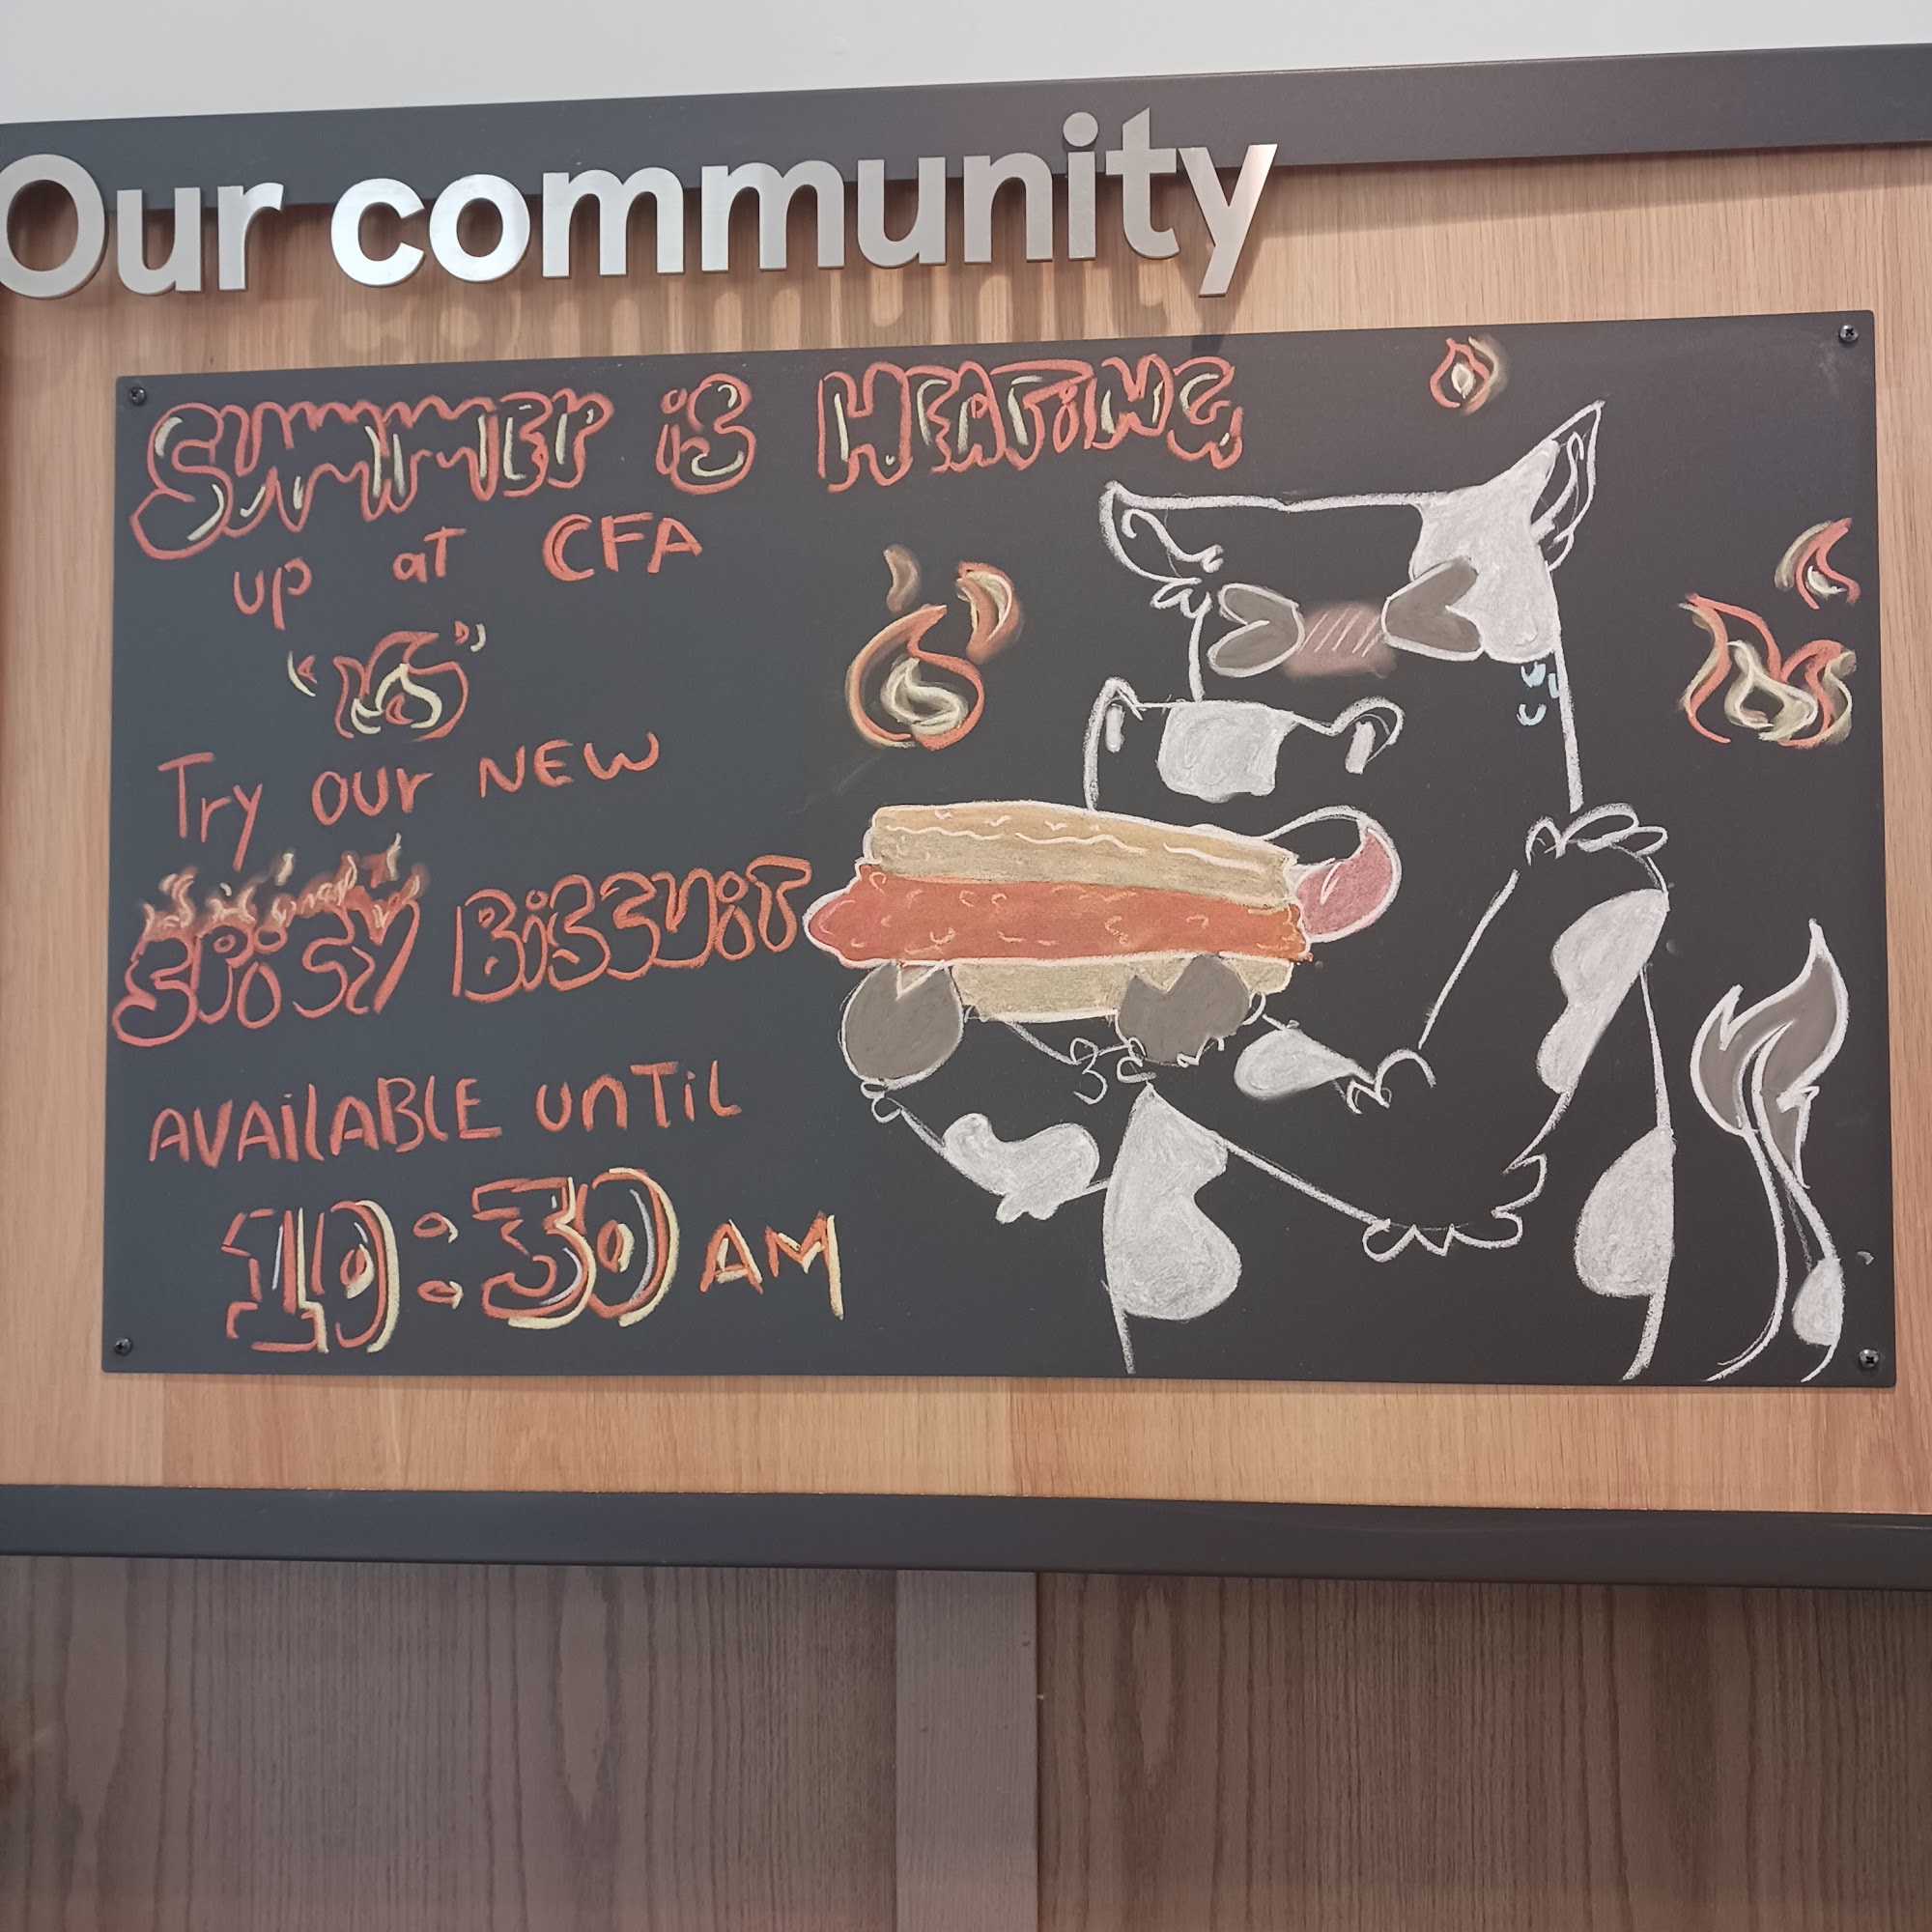 Our community
SUMMER iS HEATiNG
up at CFA
Try our NEW
SPiCY BiSCUiT
AVAilABlE unTil
10:30 AM